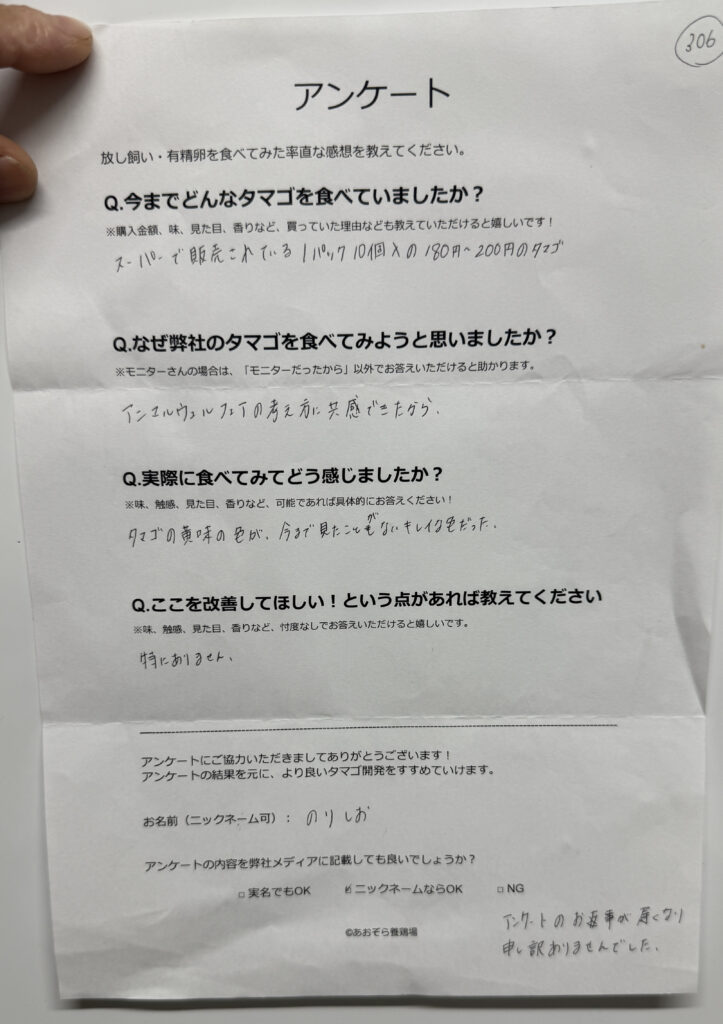 306
アンケート
放し飼い・有精卵を食べてみた率直な感想を教えてください。
Q.今までどんなタマゴを食べていましたか？
※購入金額、味、見た目、香りなど、買っていた理由なども教えていただけると嬉しいです！
スーパーで販売されている1パック10個入の180円～200円のタマゴ
Q.なぜ弊社のタマゴを食べてみようと思いましたか？
※モニターさんの場合は、「モニターだったから」以外でお答えいただけると助かります。
アニマルウェルフェアの考え方に共感できたから。
Q.実際に食べてみてどう感じましたか？
※味、触感、見た目、香りなど、可能であれば具体的にお答えください！
タマゴの黄味の色が、今まで見たことがないキレイな色だった。
Q.ここを改善してほしい！という点があれば教えてください
※味、触感、見た目、香りなど、忖度なしでお答えいただけると嬉しいです。
特にありません。
アンケートにご協力いただきましてありがとうございます！
アンケートの結果を元に、より良いタマゴ開発をすすめていけます。
お名前（ニックネーム可）： のりしお
アンケートの内容を弊社メディアに記載しても良いでしょうか？
□実名でもOK ☑ニックネームならOK □NG
アンケートのお返事が遅くなり
申し訳ありませんでした。
©あおぞら養鶏場